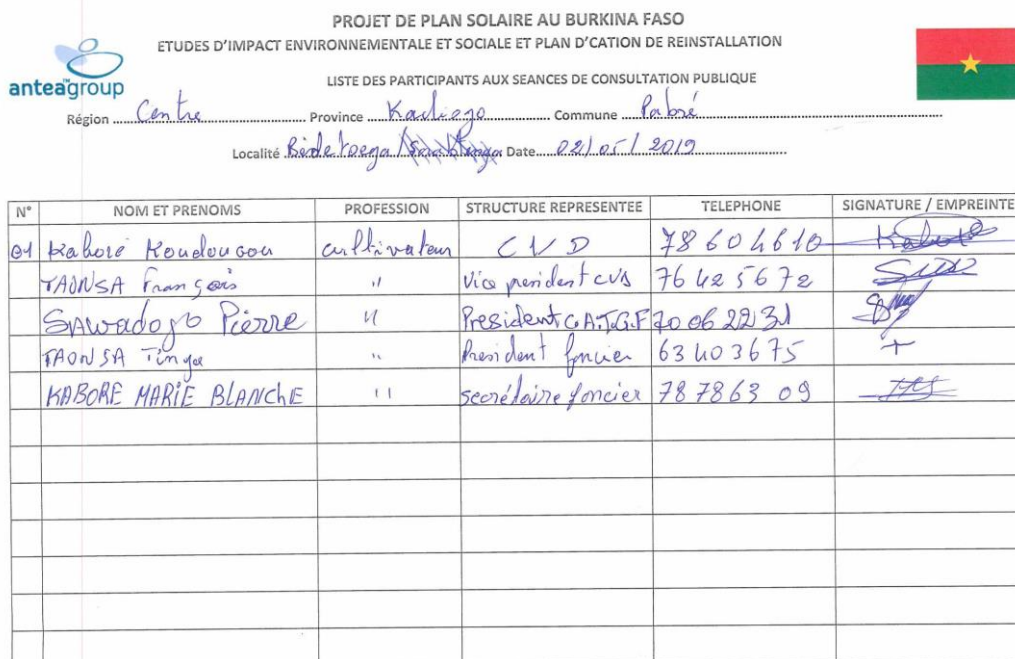 PROJET DE PLAN SOLAIRE AU BURKINA FASO
ETUDES D'IMPACT ENVIRONNEMENTALE ET SOCIALE ET PLAN D'CATION DE REINSTALLATION
anteagroup
LISTE DES PARTICIPANTS AUX SEANCES DE CONSULTATION PUBLIQUE
Région Centre Province Kadiogo Commune Pabré
Localité Date 02/05/2019
N° NOM ET PRENOMS PROFESSION STRUCTURE REPRESENTEE TELEPHONE SIGNATURE / EMPREINTE
01 Kaboré Koudougou cultivateur CVD 78 60 46 10
TAONSA François " Vice president CVD 76 42 56 72
SAWadogo Pierre " President 70 06 22 31
TAONSA Tinga " President foncier 63 40 36 75 +
KABORE MARIE BLANCHE " secrétaire foncier 78 78 63 09